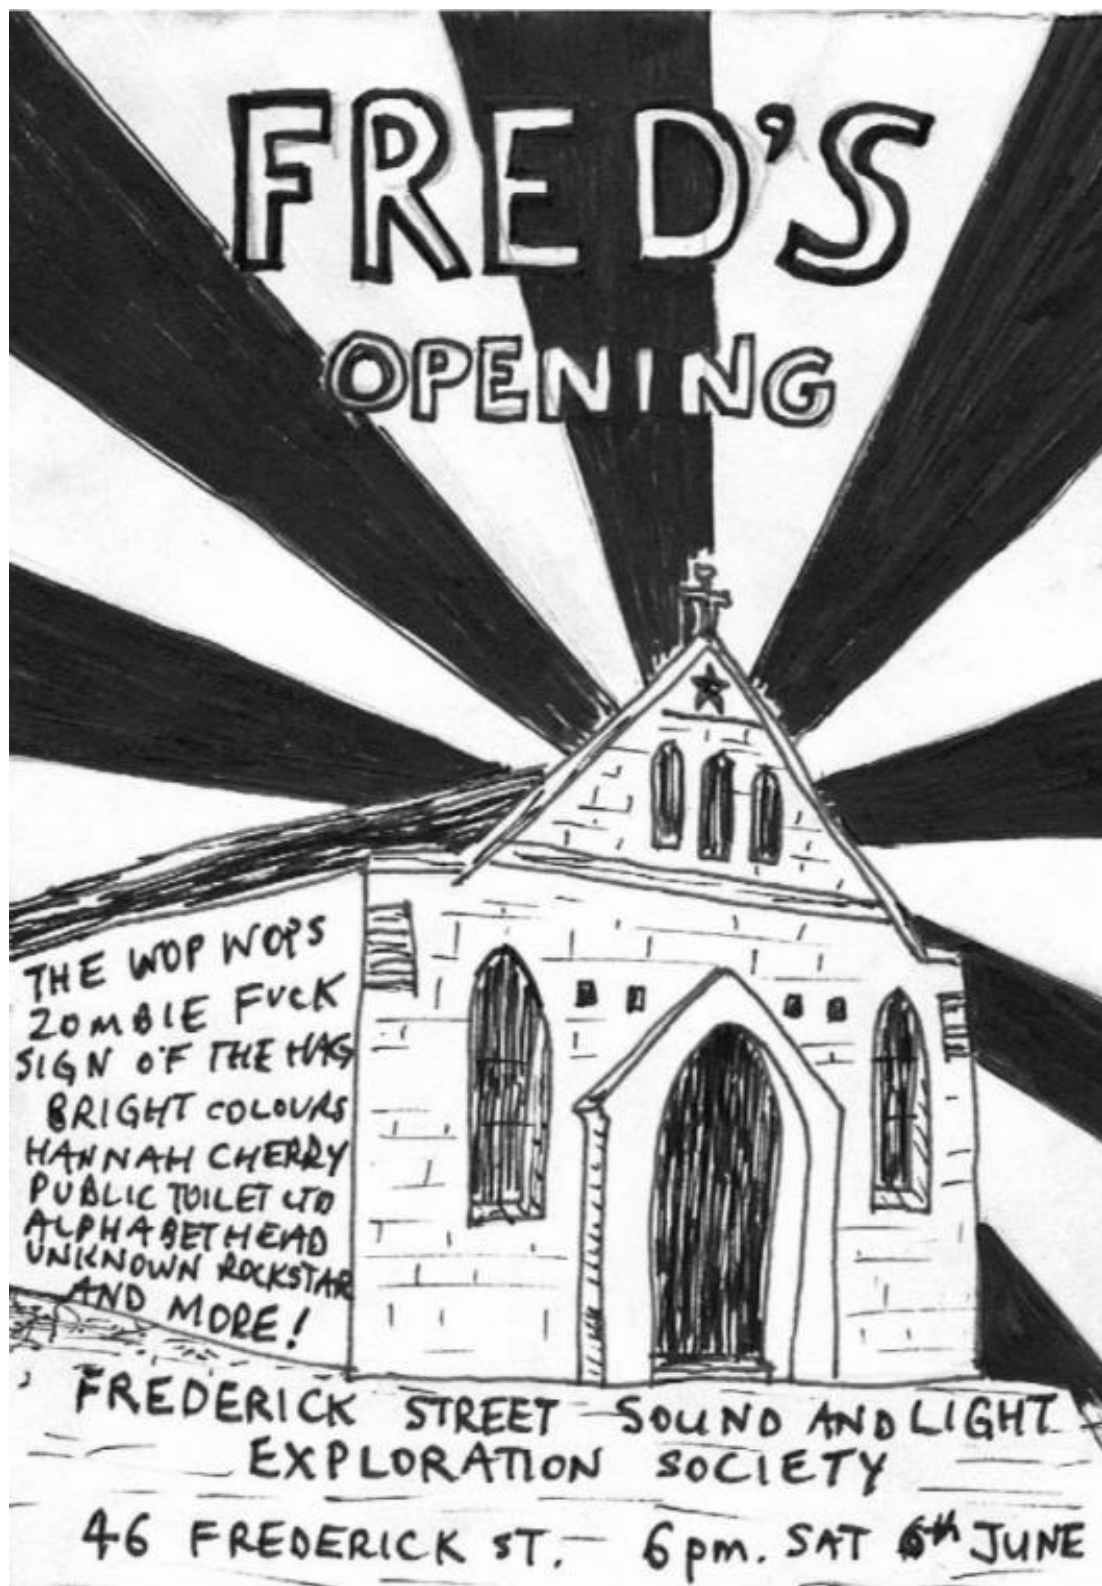 FRED'S
OPENING
THE WOP WOPS
ZOMBIE FUCK
SIGN OF THE HAG
BRIGHT COLOURS
HANNAH CHERRY
PUBLIC TOILET LTD
ALPHABETHEAD
UNKNOWN ROCKSTAR
AND MORE!
FREDERICK STREET SOUND AND LIGHT
EXPLORATION SOCIETY
46 FREDERICK ST. 6pm. SAT 6th JUNE